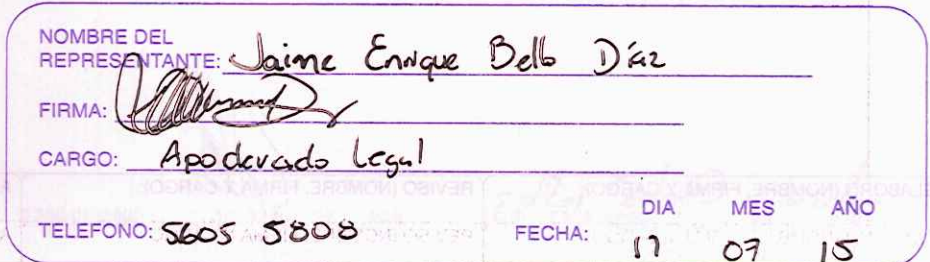 NOMBRE DEL
REPRESENTANTE: Jaime Enrique Bello Díaz
FIRMA:
CARGO: Apoderado Legal
DIA MES AÑO
TELEFONO: 5605 5808 FECHA: 17 07 15